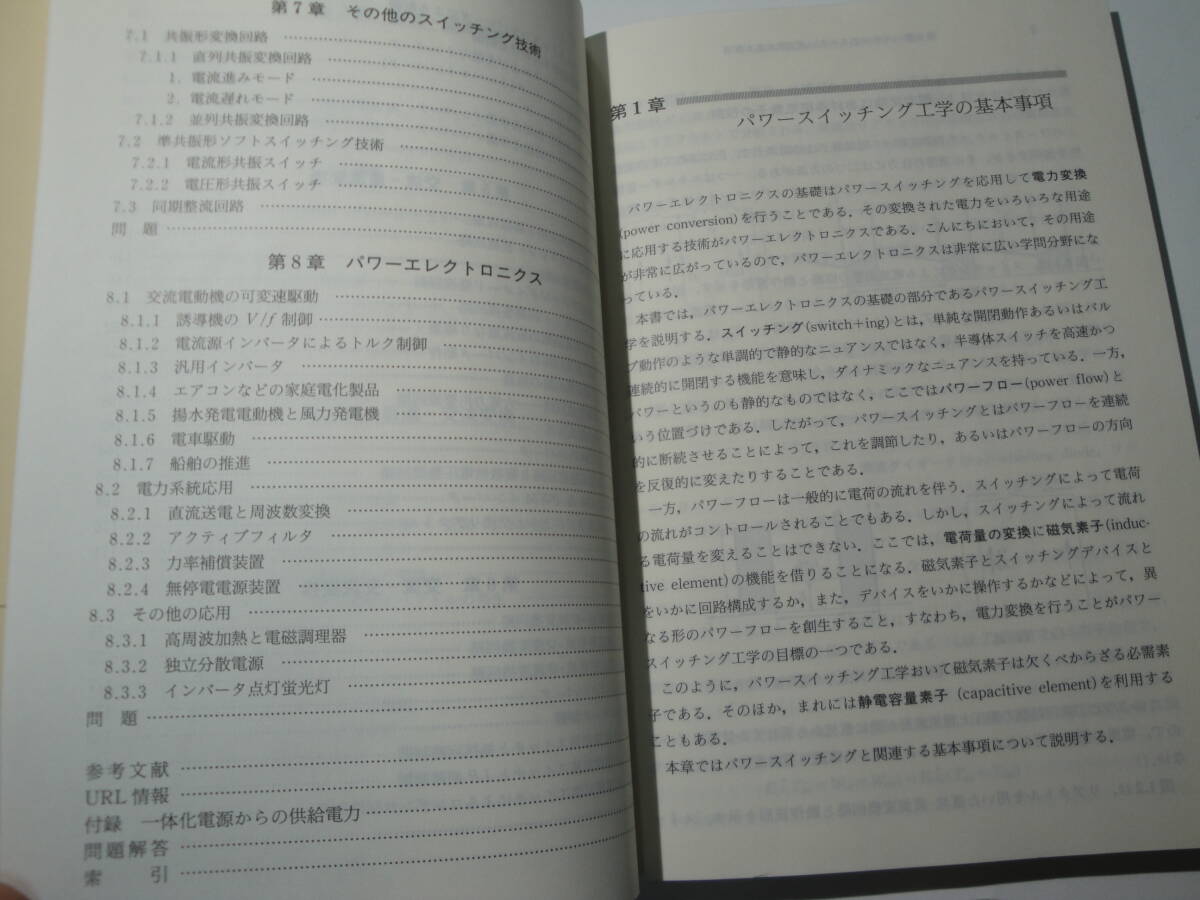 第7章　その他のスイッチング技術
7.1　共振形変換回路
7.1.1　直列共振変換回路
1. 電流進みモード
2. 電流遅れモード
7.1.2　並列共振変換回路
7.2　準共振形ソフトスイッチング技術
7.2.1　電流形共振スイッチ
7.2.2　電圧形共振スイッチ
7.3　同期整流回路
問　題
第8章　パワーエレクトロニクス
8.1　交流電動機の可変速駆動
8.1.1　誘導機の V/f 制御
8.1.2　電流源インバータによるトルク制御
8.1.3　汎用インバータ
8.1.4　エアコンなどの家庭電化製品
8.1.5　揚水発電電動機と風力発電機
8.1.6　電車駆動
8.1.7　船舶の推進
8.2　電力系統応用
8.2.1　直流送電と周波数変換
8.2.2　アクティブフィルタ
8.2.3　力率補償装置
8.2.4　無停電電源装置
8.3　その他の応用
8.3.1　高周波加熱と電磁調理器
8.3.2　独立分散電源
8.3.3　インバータ点灯蛍光灯
問　題
参考文献
URL 情報
付録　一体化電源からの供給電力
問題解答
索　　引
第1章
パワースイッチング工学の基本事項
パワーエレクトロニクスの基礎はパワースイッチングを応用して電力変換
(power conversion)を行うことである．その変換された電力をいろいろな用途
に応用する技術がパワーエレクトロニクスである．こんにちにおいて，その用途
が非常に広がっているので，パワーエレクトロニクスは非常に広い学問分野にな
っている．
本書では，パワーエレクトロニクスの基礎の部分であるパワースイッチング工
学を説明する．スイッチング(switch+ing)とは，単純な開閉動作あるいはバル
ブ動作のような単調的で静的なニュアンスではなく，半導体スイッチを高速かつ
連続的に開閉する機能を意味し，ダイナミックなニュアンスを持っている．一方，
パワーというのも静的なものではなく，ここではパワーフロー(power flow)と
いう位置づけである．したがって，パワースイッチングとはパワーフローを連続
的に断続させることによって，これを調節したり，あるいはパワーフローの方向
を反復的に変えたりすることである．
一方，パワーフローは一般的に電荷の流れを伴う．スイッチングによって電荷
の流れがコントロールされることでもある．しかし，スイッチングによって流れ
る電荷量を変えることはできない．ここでは，電荷量の変換に磁気素子(induc-
tive element)の機能を借りることになる．磁気素子とスイッチングデバイスと
をいかに回路構成するか，また，デバイスをいかに操作するかなどによって，異
なる形のパワーフローを創生すること，すなわち，電力変換を行うことがパワー
スイッチング工学の目標の一つである．
このように，パワースイッチング工学おいて磁気素子は欠くべからざる必需素
子である．そのほか，まれには静電容量素子 (capacitive element)を利用する
こともある．
本章ではパワースイッチングと関連する基本事項について説明する．